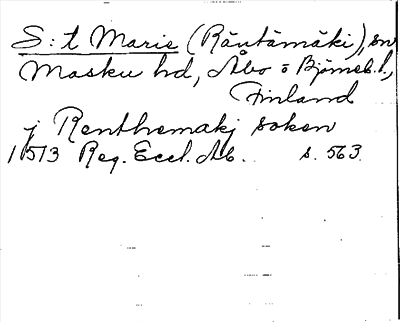 S:t Marie (Räntämäki), sn
Masku hd, Åbo o Björneb. l.,
Finland
j Renthemakj soken
1513 Reg. Eccl. Ab. s. 563.